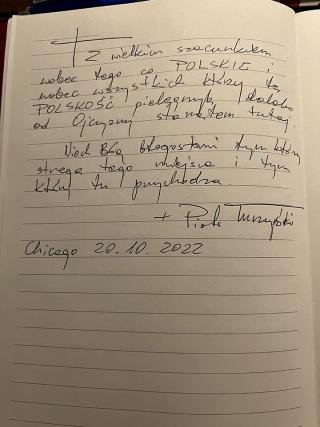 Z wielkim szacunkiem
wobec tego co POLSKIE i
wobec wszystkich którzy tę
POLSKOŚĆ pielęgnują daleko
od Ojczyzny stanąłem tutaj.
Niech Bóg błogosławi tym którzy
strzegą tego miejsca i tym
którzy tu przychodzą.
+ Piotr Turzyński
Chicago 20.10.2022